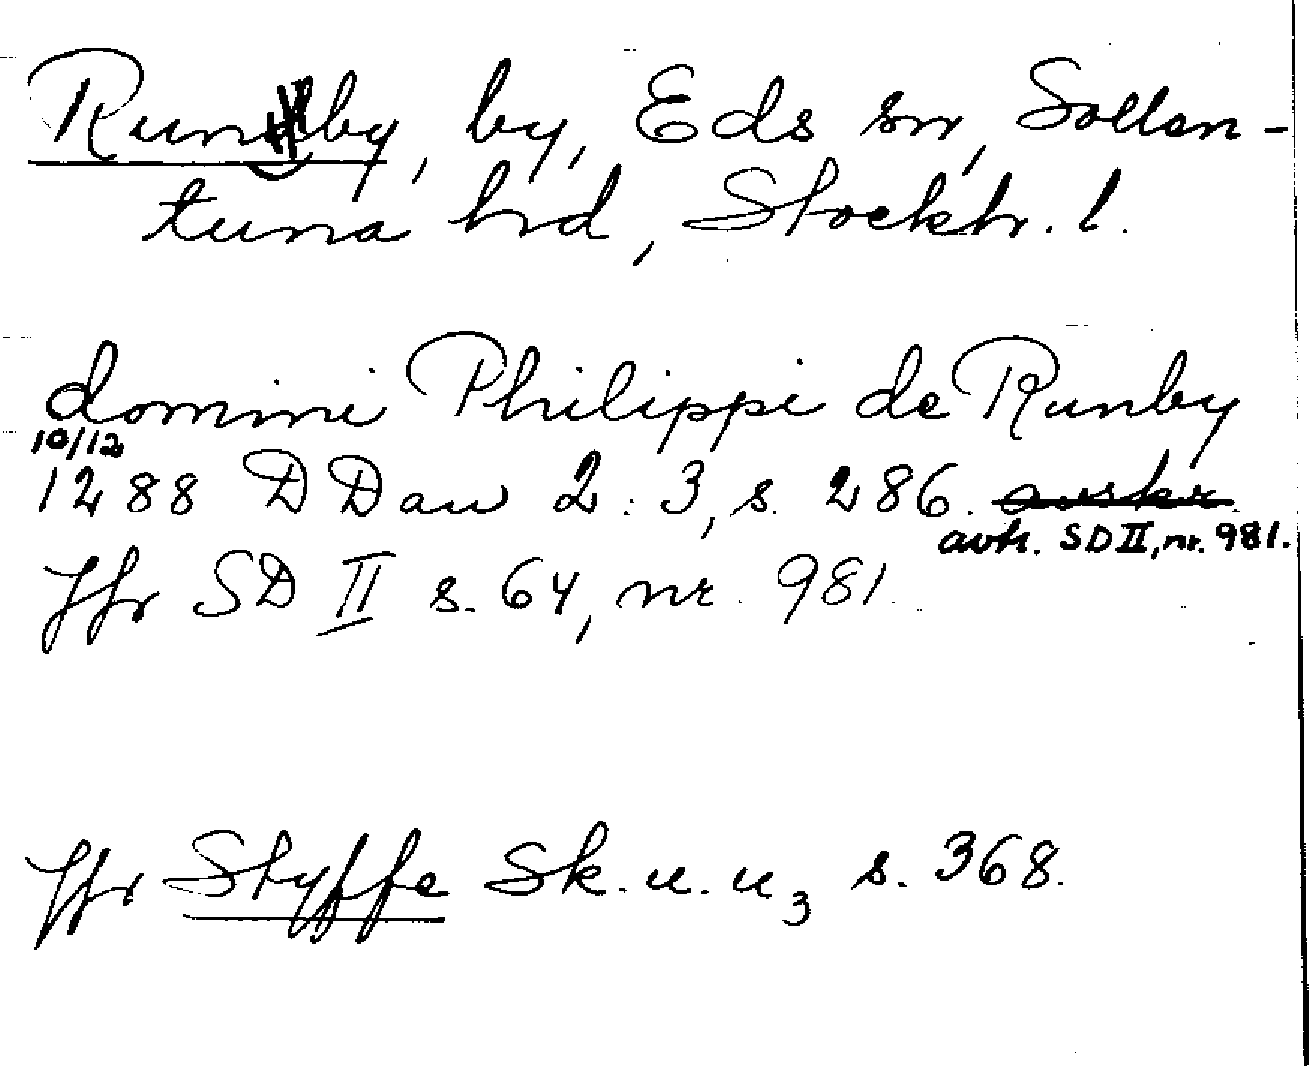 Runby, by, Eds sn, Sollen-
tuna hrd, Stockh. l.
domini Philippi de Runby
10/12
1288 DDan 2:3, s. 286. avskr.
avtr. SD II, nr. 981.
Jfr SD II s. 64, nr. 981.
Jfr Styffe Sk. u. u3 s. 368.